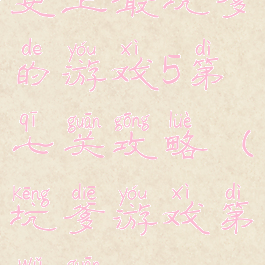 史上最坑爹
de yóu xì dì
的游戏5第
qī guān gōng lüè
七关攻略（
kēng diē yóu xì dì
坑爹游戏第